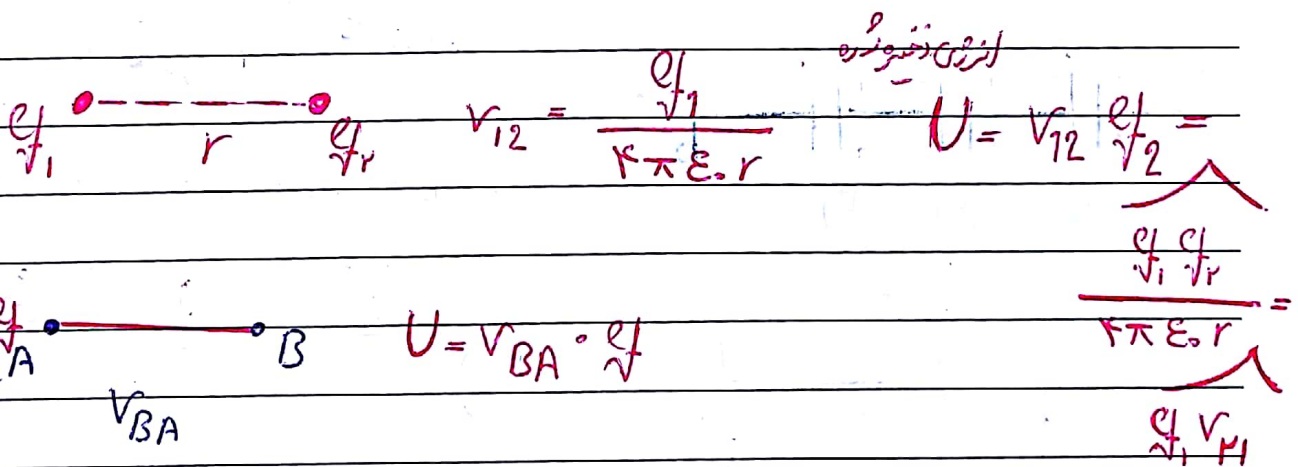 انرژی ذخیره شده
q₁ r q₂ V₁₂ = q₁ / ۴πε₀r U = V₁₂ q₂ =
q₁ q₂ / ۴πε₀r =
q A B U = V_BA · q
V_BA
q₁ V₂₁